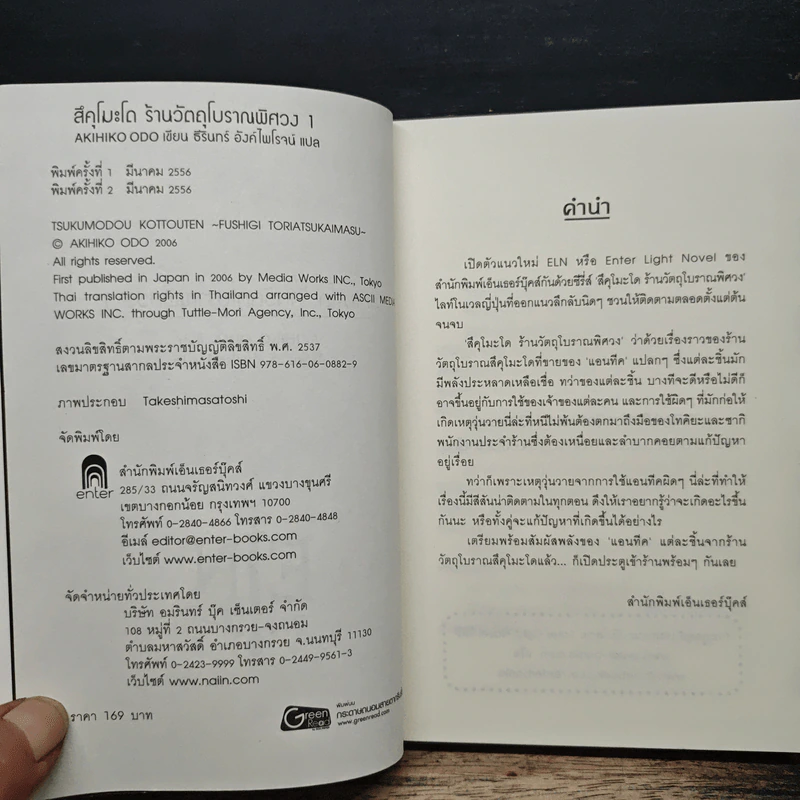 สึคุโมะโด ร้านวัตถุโบราณพิศวง 1
AKIHIKO ODO เขียน ธีรินทร์ อังค์ไพโรจน์ แปล
พิมพ์ครั้งที่ 1 มีนาคม 2556
พิมพ์ครั้งที่ 2 มีนาคม 2556
TSUKUMODOU KOTTOUTEN ~FUSHIGI TORIATSUKAIMASU~
© AKIHIKO ODO 2006
All rights reserved.
First published in Japan in 2006 by Media Works INC., Tokyo
Thai translation rights in Thailand arranged with ASCII MEDIA
WORKS INC. through Tuttle-Mori Agency, Inc., Tokyo
สงวนลิขสิทธิ์ตามพระราชบัญญัติลิขสิทธิ์ พ.ศ. 2537
เลขมาตรฐานสากลประจำหนังสือ ISBN 978-616-06-0882-9
ภาพประกอบ Takeshimasatoshi
จัดพิมพ์โดย
enter
สำนักพิมพ์เอ็นเธอร์บุ๊คส์
285/33 ถนนจรัญสนิทวงศ์ แขวงบางขุนศรี
เขตบางกอกน้อย กรุงเทพฯ 10700
โทรศัพท์ 0-2840-4866 โทรสาร 0-2840-4848
อีเมล์ editor@enter-books.com
เว็บไซต์ www.enter-books.com
จัดจำหน่ายทั่วประเทศโดย
บริษัท อมรินทร์ บุ๊ค เซ็นเตอร์ จำกัด
108 หมู่ที่ 2 ถนนบางกรวย-จงถนอม
ตำบลมหาสวัสดิ์ อำเภอบางกรวย จ.นนทบุรี 11130
โทรศัพท์ 0-2423-9999 โทรสาร 0-2449-9561-3
เว็บไซต์ www.naiin.com
ราคา 169 บาท
Green Read
พิมพ์บน
กระดาษถนอมสายตากรีนรี้ด
www.greenread.com
คำนำ
เปิดตัวแนวใหม่ ELN หรือ Enter Light Novel ของ
สำนักพิมพ์เอ็นเธอร์บุ๊คส์กันด้วยซีรี่ส์ 'สึคุโมะโด ร้านวัตถุโบราณพิศวง'
ไลท์โนเวลญี่ปุ่นที่ออกแนวลึกลับนิดๆ ชวนให้ติดตามตลอดตั้งแต่ต้น
จนจบ
'สึคุโมะโด ร้านวัตถุโบราณพิศวง' ว่าด้วยเรื่องราวของร้าน
วัตถุโบราณสึคุโมะโดที่ขายของ 'แอนทีค' แปลกๆ ซึ่งแต่ละชิ้นมัก
มีพลังประหลาดเหลือเชื่อ ทว่าของแต่ละชิ้น บางทีจะดีหรือไม่ดีก็
อาจขึ้นอยู่กับการใช้ของเจ้าของแต่ละคน และการใช้ผิดๆ ที่มักก่อให้
เกิดเหตุวุ่นวายนี่ล่ะที่หนีไม่พ้นต้องตกมาถึงมือของโทคิยะและซากิ
พนักงานประจำร้านซึ่งต้องเหนื่อยและลำบากคอยตามแก้ปัญหา
อยู่เรื่อย
ทว่าก็เพราะเหตุวุ่นวายจากการใช้แอนทีคผิดๆ นี่ล่ะที่ทำให้
เรื่องนี้มีสีสันน่าติดตามในทุกตอน ดึงให้เราอยากรู้ว่าจะเกิดอะไรขึ้น
กันนะ หรือทั้งคู่จะแก้ปัญหาที่เกิดขึ้นได้อย่างไร
เตรียมพร้อมสัมผัสพลังของ 'แอนทีค' แต่ละชิ้นจากร้าน
วัตถุโบราณสึคุโมะโดแล้ว... ก็เปิดประตูเข้าร้านพร้อมๆ กันเลย
สำนักพิมพ์เอ็นเธอร์บุ๊คส์